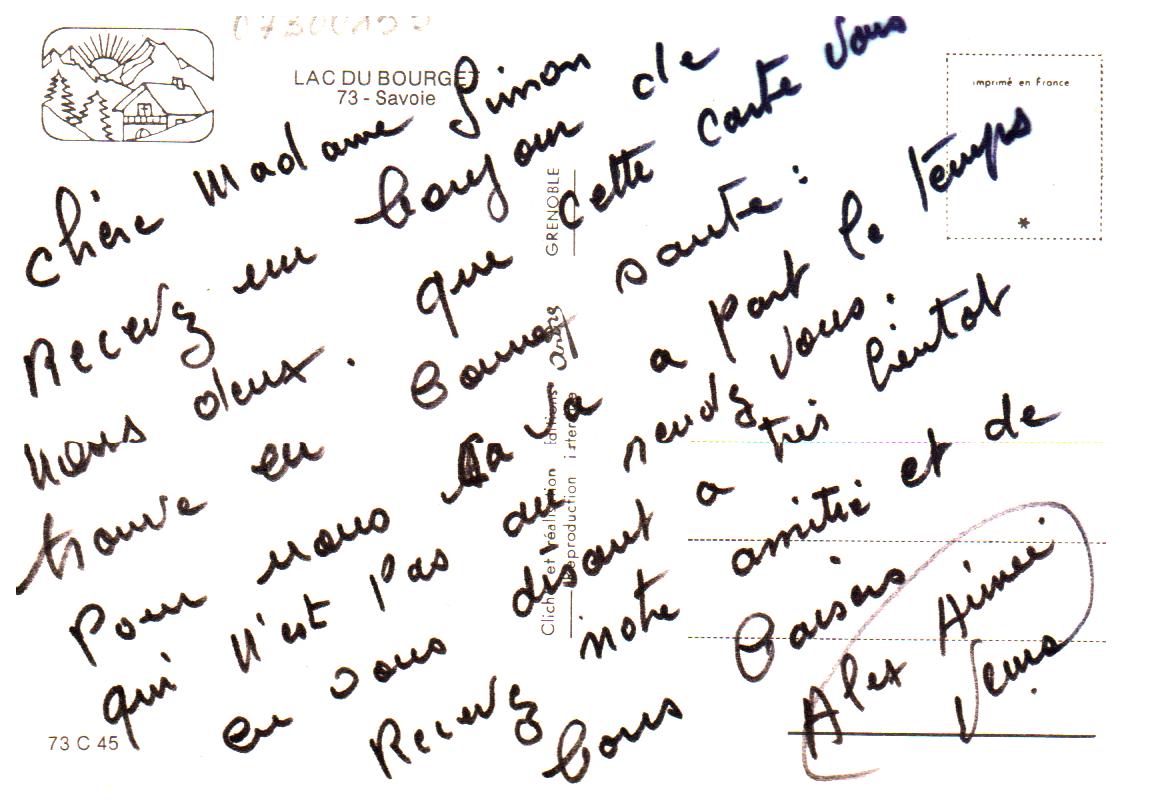 LAC DU BOURGET
73 - Savoie
imprimé en France
*
GRENOBLE
73 C 45
chère Madame Simon
Recevez un bonjour de
nous deux. que cette carte vous
trouve en bonnes santé :
Pour nous sa va a part le temps
qui n'est pas au rendez vous.
en vous disant a très bientot
Recevez notre amitié et de
bons Baisers
Alex Aimée